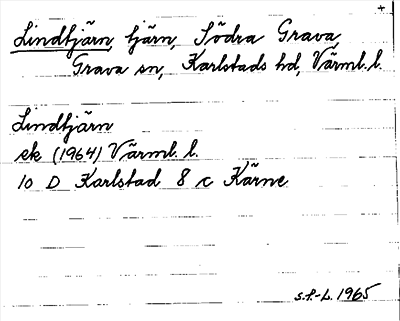 +
Lindtjärn, tjärn, Södra Grava,
Grava sn, Karlstads hd, Värml. l.
Lindtjärn
ek (1964) Värml. l.
10 D Karlstad 8 c Kärne
S.F.-L. 1965